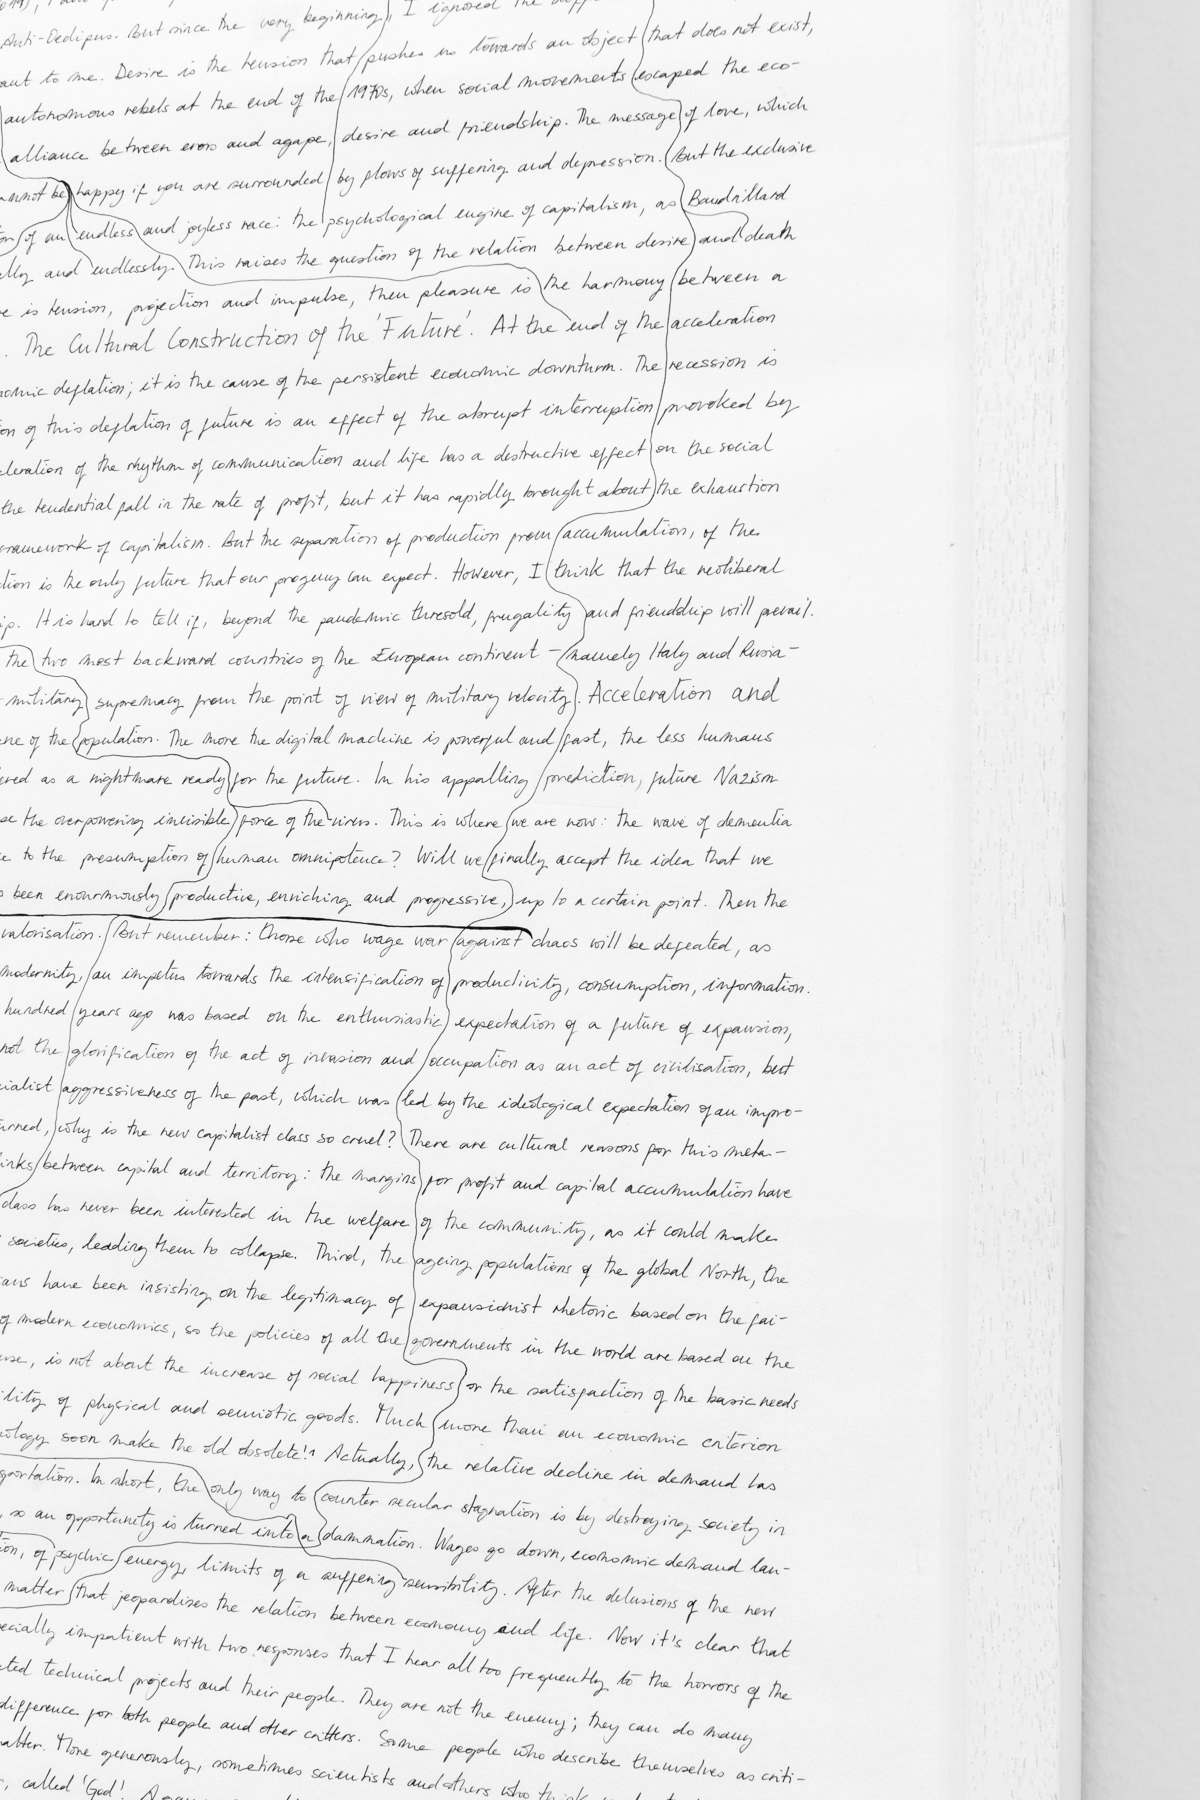 Anti-Oedipus. But since the very beginning, I ignored the
to me. Desire is the tension that pushes us towards an object that does not exist,
autonomous rebels at the end of the 1970s, when social movements escaped the eco-
alliance between eros and agape, desire and friendship. The message of love, which
be happy if you are surrounded by flows of suffering and depression. But the exclusive
of an endless and joyless race: the psychological engine of capitalism, as Baudrillard
and endlessly. This raises the question of the relation between desire and death
is tension, projection and impulse, then pleasure is the harmony between a
. The Cultural Construction of the 'Future'. At the end of the acceleration
deflation; it is the cause of the persistent economic downturn. The recession is
of this deflation of future is an effect of the abrupt interruption provoked by
of the rhythm of communication and life has a destructive effect on the social
the tendential fall in the rate of profit, but it has rapidly brought about the exhaustion
of capitalism. But the separation of production from accumulation, of the
is the only future that our progeny can expect. However, I think that the neoliberal
It is hard to tell if, beyond the pandemic thresold, frugality and friendship will prevail.
the two most backward countries of the European continent – namely Italy and Russia –
military supremacy from the point of view of military velocity. Acceleration and
of the population. The more the digital machine is powerful and fast, the less humans
as a nightmare ready for the future. In his appalling prediction, future Nazism
the overpowering invisible force of the virus. This is where we are now: the wave of dementia
to the presumption of human omnipotence? Will we finally accept the idea that we
been enourmously productive, enriching and progressive, up to a certain point. Then the
valorisation. But remember: those who wage war against chaos will be defeated, as
modernity, an impetus towards the intensification of productivity, consumption, information.
hundred years ago was based on the enthusiastic expectation of a future of expansion,
not the glorification of the act of invasion and occupation as an act of civilisation, but
aggressiveness of the past, which was led by the ideological expectation of an impro-
why is the new capitalist class so cruel? There are cultural reasons for this meta-
between capital and territory: the margins for profit and capital accumulation have
class has never been interested in the welfare of the community, as it could make
societies, leading them to collapse. Third, the ageing populations of the global North, the
have been insisting on the legitimacy of expansionist rhetoric based on the fai-
of modern economics, so the policies of all the governments in the world are based on the
is not about the increase of social happiness or the satisfaction of the basic needs
of physical and semiotic goods. Much more than an economic criterion
soon make the old obsolete'. Actually, the relative decline in demand has
In short, the only way to counter secular stagnation is by destroying society in
, so an opportunity is turned into a damnation. Wages go down, economic demand lan-
of psychic energy, limits of a suffering sensibility. After the delusions of the new
matter that jeopardises the relation between economy and life. Now it's clear that
impatient with two responses that I hear all too frequently to the horrors of the
technical projects and their people. They are not the enemy; they can do many
difference for both people and other critters. Some people who describe themselves as criti-
matter. More generously, sometimes scientists and others who think
, called 'God'.